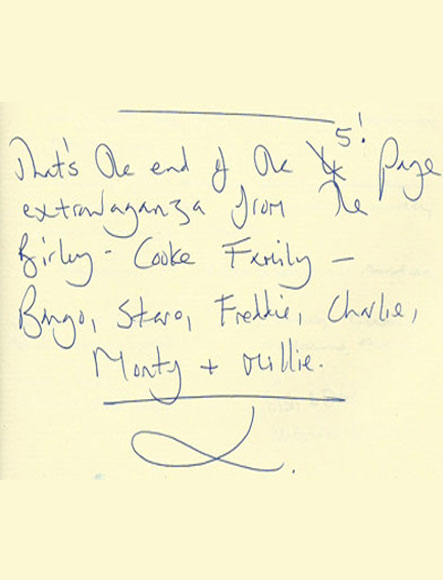 That's the end of the 5! page
extravaganza from the
Birley - Cooke Family -
Bingo, Stavo, Freddie, Charlie,
Monty + Millie.